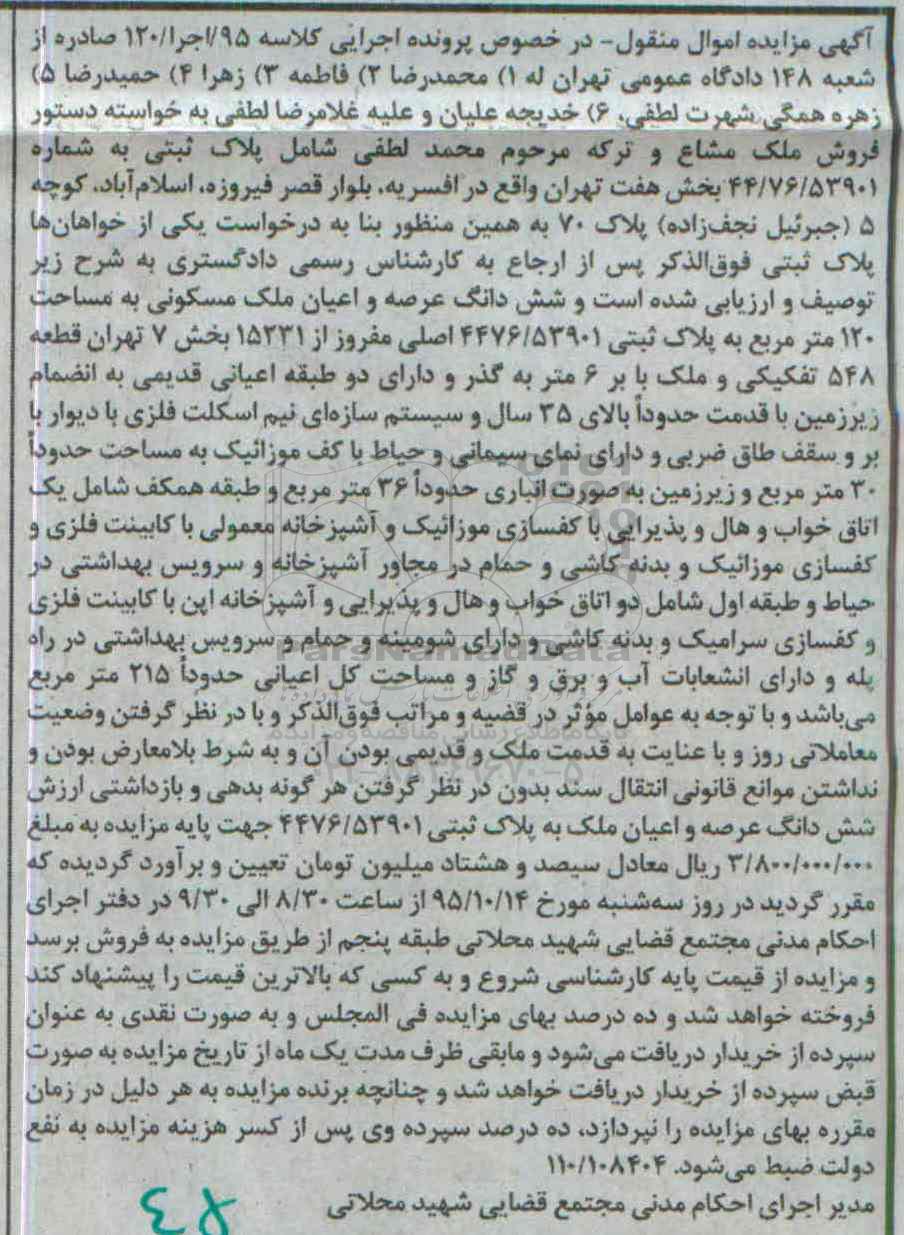 آگهی مزایده اموال منقول- در خصوص پرونده اجرایی کلاسه ۹۵/اجرا/۱۲۰ صادره از
شعبه ۱۴۸ دادگاه عمومی تهران له ۱) محمدرضا ۲) فاطمه ۳) زهرا ۴) حمیدرضا ۵)
زهره همگی شهرت لطفی، ۶) خدیجه علیان و علیه غلامرضا لطفی به خواسته دستور
فروش ملک مشاع و ترکه مرحوم محمد لطفی شامل پلاک ثبتی به شماره
۴۴/۷۶/۵۳۹۰۱ بخش هفت تهران واقع در افسریه، بلوار قصر فیروزه، اسلام‌آباد، کوچه
۵ (جبرئیل نجف‌زاده) پلاک ۷۰ به همین منظور بنا به درخواست یکی از خواهان‌ها
پلاک ثبتی فوق‌الذکر پس از ارجاع به کارشناس رسمی دادگستری به شرح زیر
توصیف و ارزیابی شده است و شش دانگ عرصه و اعیان ملک مسکونی به مساحت
۱۲۰ متر مربع به پلاک ثبتی ۴۴۷۶/۵۳۹۰۱ اصلی مفروز از ۱۵۲۳۱ بخش ۷ تهران قطعه
۵۴۸ تفکیکی و ملک با بر ۶ متر به گذر و دارای دو طبقه اعیانی قدیمی به انضمام
زیرزمین با قدمت حدوداً بالای ۳۵ سال و سیستم سازه‌ای نیم اسکلت فلزی با دیوار با
بر و سقف طاق ضربی و دارای نمای سیمانی و حیاط با کف موزائیک به مساحت حدوداً
۳۰ متر مربع و زیرزمین به صورت انباری حدوداً ۳۶ متر مربع و طبقه همکف شامل یک
اتاق خواب و هال و پذیرایی با کفسازی موزائیک و آشپزخانه معمولی با کابینت فلزی و
کفسازی موزائیک و بدنه کاشی و حمام در مجاور آشپزخانه و سرویس بهداشتی در
حیاط و طبقه اول شامل دو اتاق خواب و هال و پذیرایی و آشپزخانه اپن با کابینت فلزی
و کفسازی سرامیک و بدنه کاشی و دارای شومینه و حمام و سرویس بهداشتی در راه
پله و دارای انشعابات آب و برق و گاز و مساحت کل اعیانی حدوداً ۲۱۵ متر مربع
می‌باشد و با توجه به عوامل مؤثر در قضیه و مراتب فوق‌الذکر و با در نظر گرفتن وضعیت
معاملاتی روز و با عنایت به قدمت ملک و قدیمی بودن آن و به شرط بلامعارض بودن و
نداشتن موانع قانونی انتقال سند بدون در نظر گرفتن هر گونه بدهی و بازداشتی ارزش
شش دانگ عرصه و اعیان ملک به پلاک ثبتی ۴۴۷۶/۵۳۹۰۱ جهت پایه مزایده به مبلغ
۳/۸۰۰/۰۰۰/۰۰۰ ریال معادل سیصد و هشتاد میلیون تومان تعیین و برآورد گردیده که
مقرر گردید در روز سه‌شنبه مورخ ۹۵/۱۰/۱۴ از ساعت ۸/۳۰ الی ۹/۳۰ در دفتر اجرای
احکام مدنی مجتمع قضایی شهید محلاتی طبقه پنجم از طریق مزایده به فروش برسد
و مزایده از قیمت پایه کارشناسی شروع و به کسی که بالاترین قیمت را پیشنهاد کند
فروخته خواهد شد و ده درصد بهای مزایده فی المجلس و به صورت نقدی به عنوان
سپرده از خریدار دریافت می‌شود و مابقی ظرف مدت یک ماه از تاریخ مزایده به صورت
قبض سپرده از خریدار دریافت خواهد شد و چنانچه برنده مزایده به هر دلیل در زمان
مقرره بهای مزایده را نپردازد، ده درصد سپرده وی پس از کسر هزینه مزایده به نفع
دولت ضبط می‌شود. ۱۱۰/۱۰۸۴۰۴
مدیر اجرای احکام مدنی مجتمع قضایی شهید محلاتی
ParsNamadData